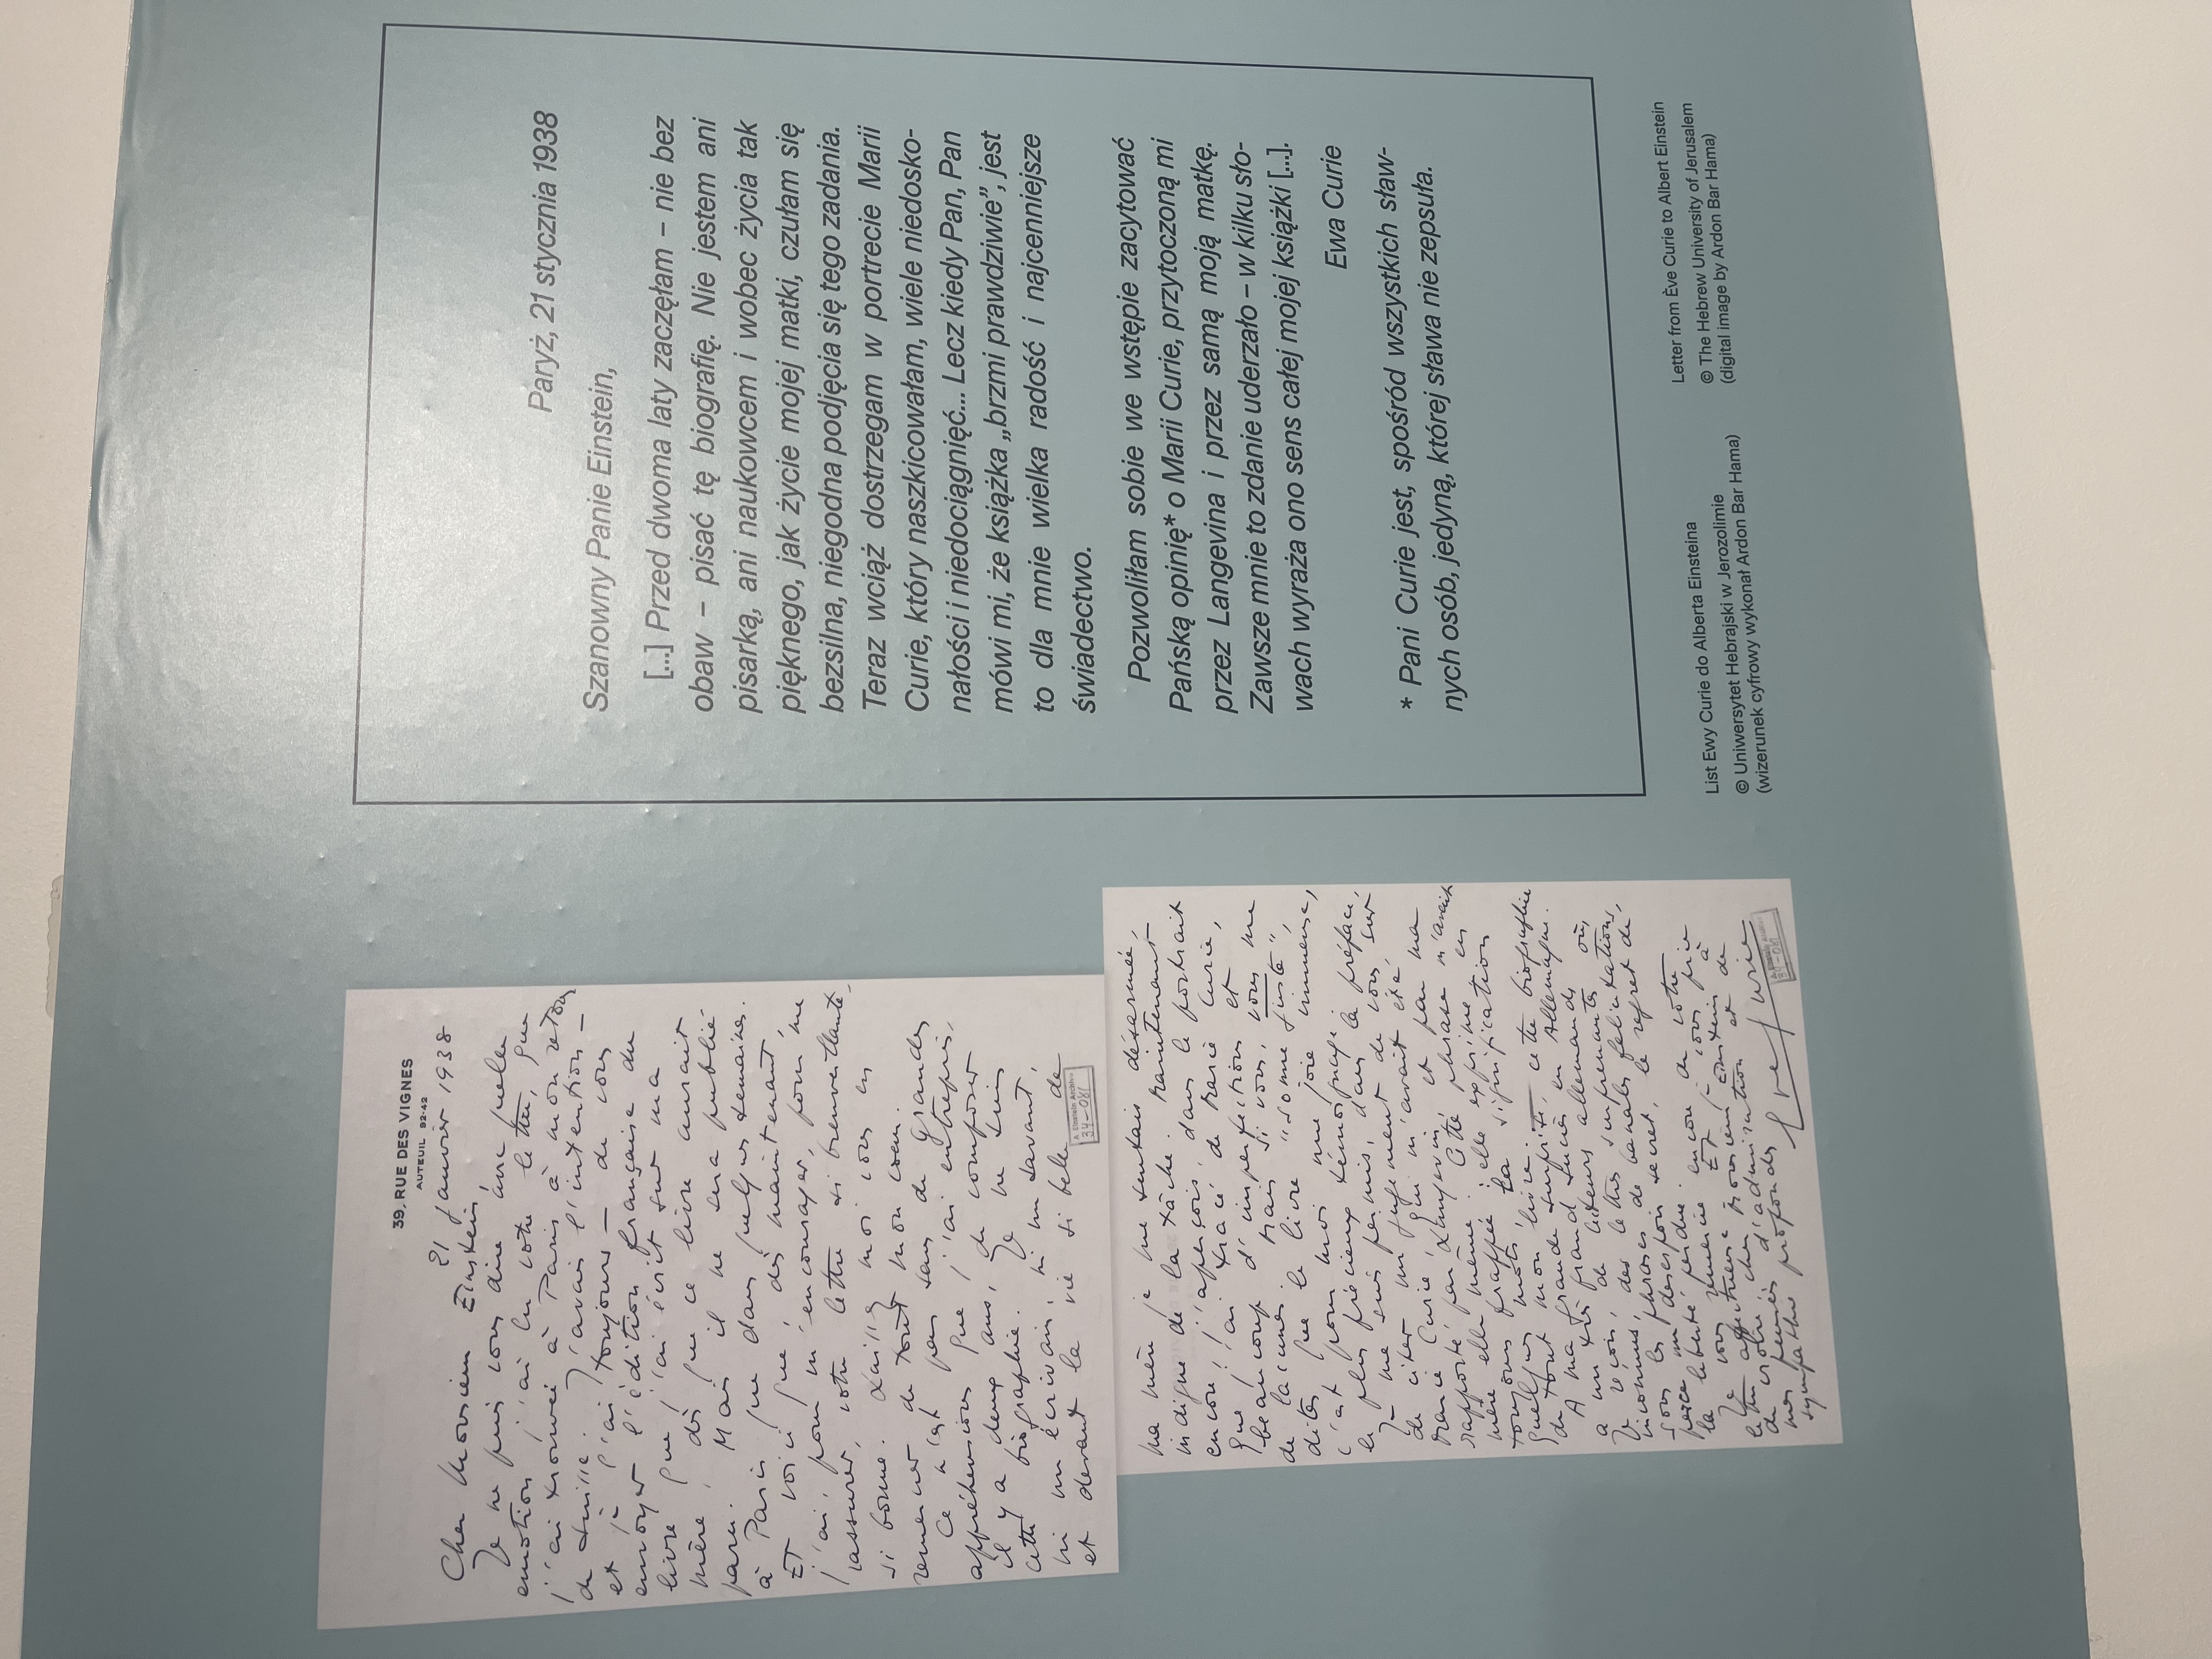 39, RUE DES VIGNES
AUTEUIL 92-42
21 janvier 1938
Cher Monsieur Einstein,
Je ne puis vous dire avec quelle
emotion j'ai lu votre lettre, que
j'ai trouvée à Paris à mon retour
de Suisse. J'avais l'intention –
et je l'ai toujours – de vous
envoyer l'édition française du
livre que j'ai écrit sur ma
mère, dès que ce livre aurait
paru. Mais il ne sera publié
à Paris que dans quelques semaines.
Et voici que, dès maintenant,
j'ai, pour m'encourager, pour me
rassurer, votre lettre si bienveillante,
si bonne. Laissez moi vous en
remercier de tout mon coeur.
Ce n'est pas sans de grandes
appréhensions que j'ai entrepris,
il y a deux ans, de composer
cette biographie. Je ne suis
ni un écrivain, ni un savant,
et devant la vie si belle de
A Einstein Archive
34-081
ma mère je me sentais désarmée,
indigne de la tâche. Maintenant
encore, j'aperçois, dans le portrait
que j'ai tracé de Marie Curie,
beaucoup d'imperfections et
de lacunes. Mais si vous, vous me
dites que le livre "sonne juste",
c'est pour moi une joie immense,
le plus précieux témoignage.
Je me suis permis, dans la préface,
de citer un jugement de vous sur
Marie Curie, qui m'avait été
rapporté par Langevin, et par ma
mère elle même. Cette phrase m'avait
toujours frappée : elle exprime, en
quelques mots, la signification
de tout mon livre.
A ma grande surprise, cette biographie
a un très grand succès en Allemagne.
Je reçois, de lecteurs allemands
inconnus, des lettres surprenantes où,
sous les phrases de banales felicitations,
perce un desespoir secret, le regret de
la liberté perdue.
Je vous remercie encore de votre
lettre affectueuse. Et je vous prie
de croire, cher Monsieur Einstein à
mes pensées d'admiration et de
sympathie profondes
Eve Curie
A. Einstein Archive
34-081
Paryż, 21 stycznia 1938
Szanowny Panie Einstein,
[...] Przed dwoma laty zaczęłam – nie bez
obaw – pisać tę biografię. Nie jestem ani
pisarką, ani naukowcem i wobec życia tak
pięknego, jak życie mojej matki, czułam się
bezsilna, niegodna podjęcia się tego zadania.
Teraz wciąż dostrzegam w portrecie Marii
Curie, który naszkicowałam, wiele niedosko-
nałości i niedociągnięć... Lecz kiedy Pan, Pan
mówi mi, że książka „brzmi prawdziwie”, jest
to dla mnie wielka radość i najcenniejsze
świadectwo.
Pozwoliłam sobie we wstępie zacytować
Pańską opinię* o Marii Curie, przytoczoną mi
przez Langevina i przez samą moją matkę.
Zawsze mnie to zdanie uderzało – w kilku sło-
wach wyraża ono sens całej mojej książki [...].
Ewa Curie
* Pani Curie jest, spośród wszystkich sław-
nych osób, jedyną, której sława nie zepsuła.
List Ewy Curie do Alberta Einsteina
© Uniwersytet Hebrajski w Jerozolimie
(wizerunek cyfrowy wykonał Ardon Bar Hama)
Letter from Ève Curie to Albert Einstein
© The Hebrew University of Jerusalem
(digital image by Ardon Bar Hama)